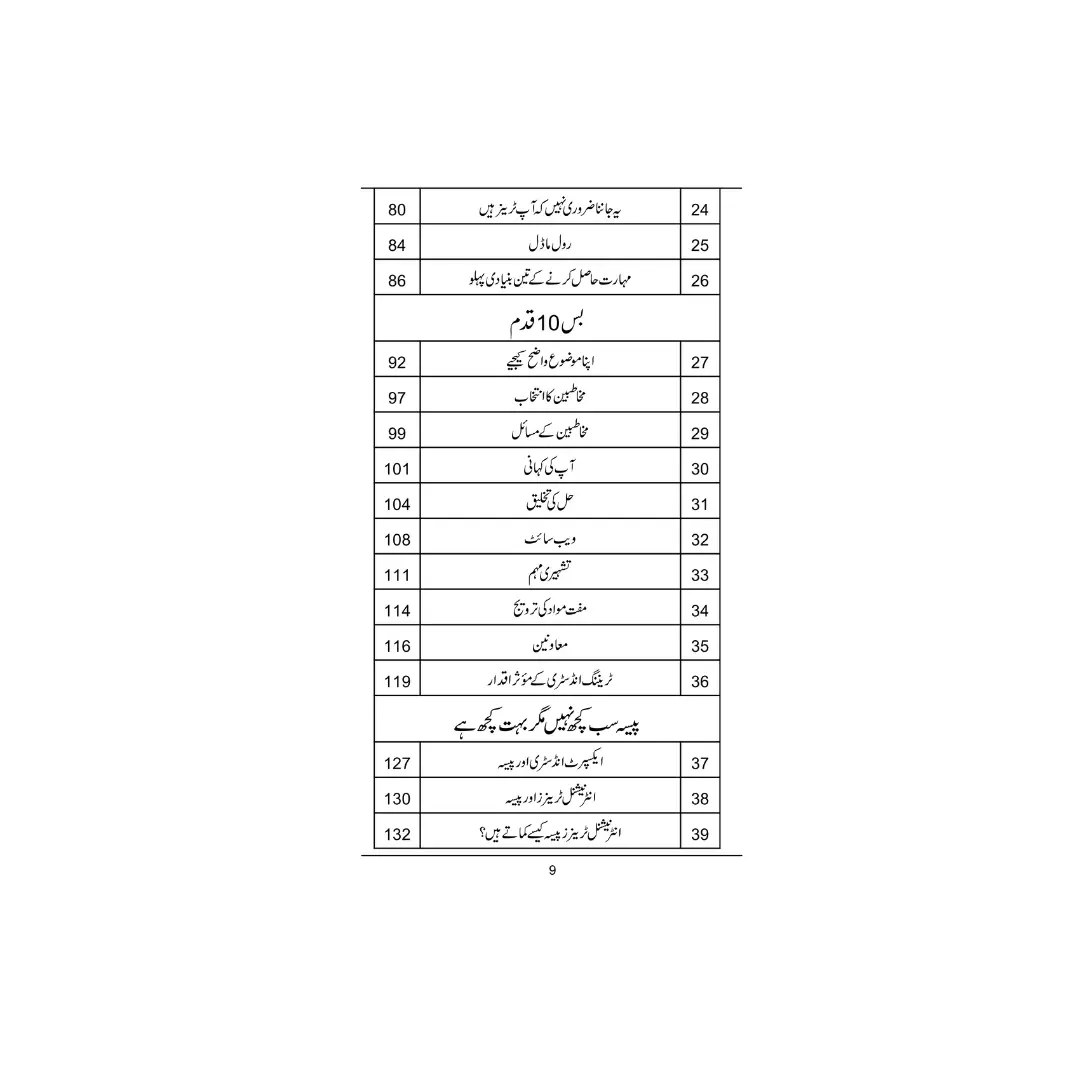 24 یہ جاننا ضروری نہیں کہ آپ ٹرینر ہیں 80
25 رول ماڈل 84
26 مہارت حاصل کرنے کے تین بنیادی پہلو 86
بس 10 قدم
27 اپنا موضوع واضح کیجیے 92
28 مخاطبین کا انتخاب 97
29 مخاطبین کے مسائل 99
30 آپ کی کہانی 101
31 حل کی تخلیق 104
32 ویب سائٹ 108
33 تشہیری مہم 111
34 مفت مواد کی ترویج 114
35 معاونین 116
36 ٹریننگ انڈسٹری کے مؤثر اقدار 119
پیسہ سب کچھ نہیں مگر بہت کچھ ہے
37 ایکسپرٹ انڈسٹری اور پیسہ 127
38 انٹرنیشنل ٹرینرز اور پیسہ 130
39 انٹرنیشنل ٹرینرز پیسہ کیسے کماتے ہیں؟ 132
9